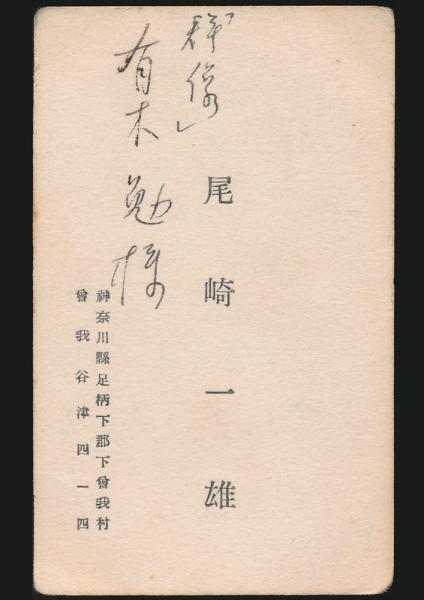 「群像」
有木勉様
尾崎一雄
神奈川縣足柄下郡下曾我村
曾我谷津四一四